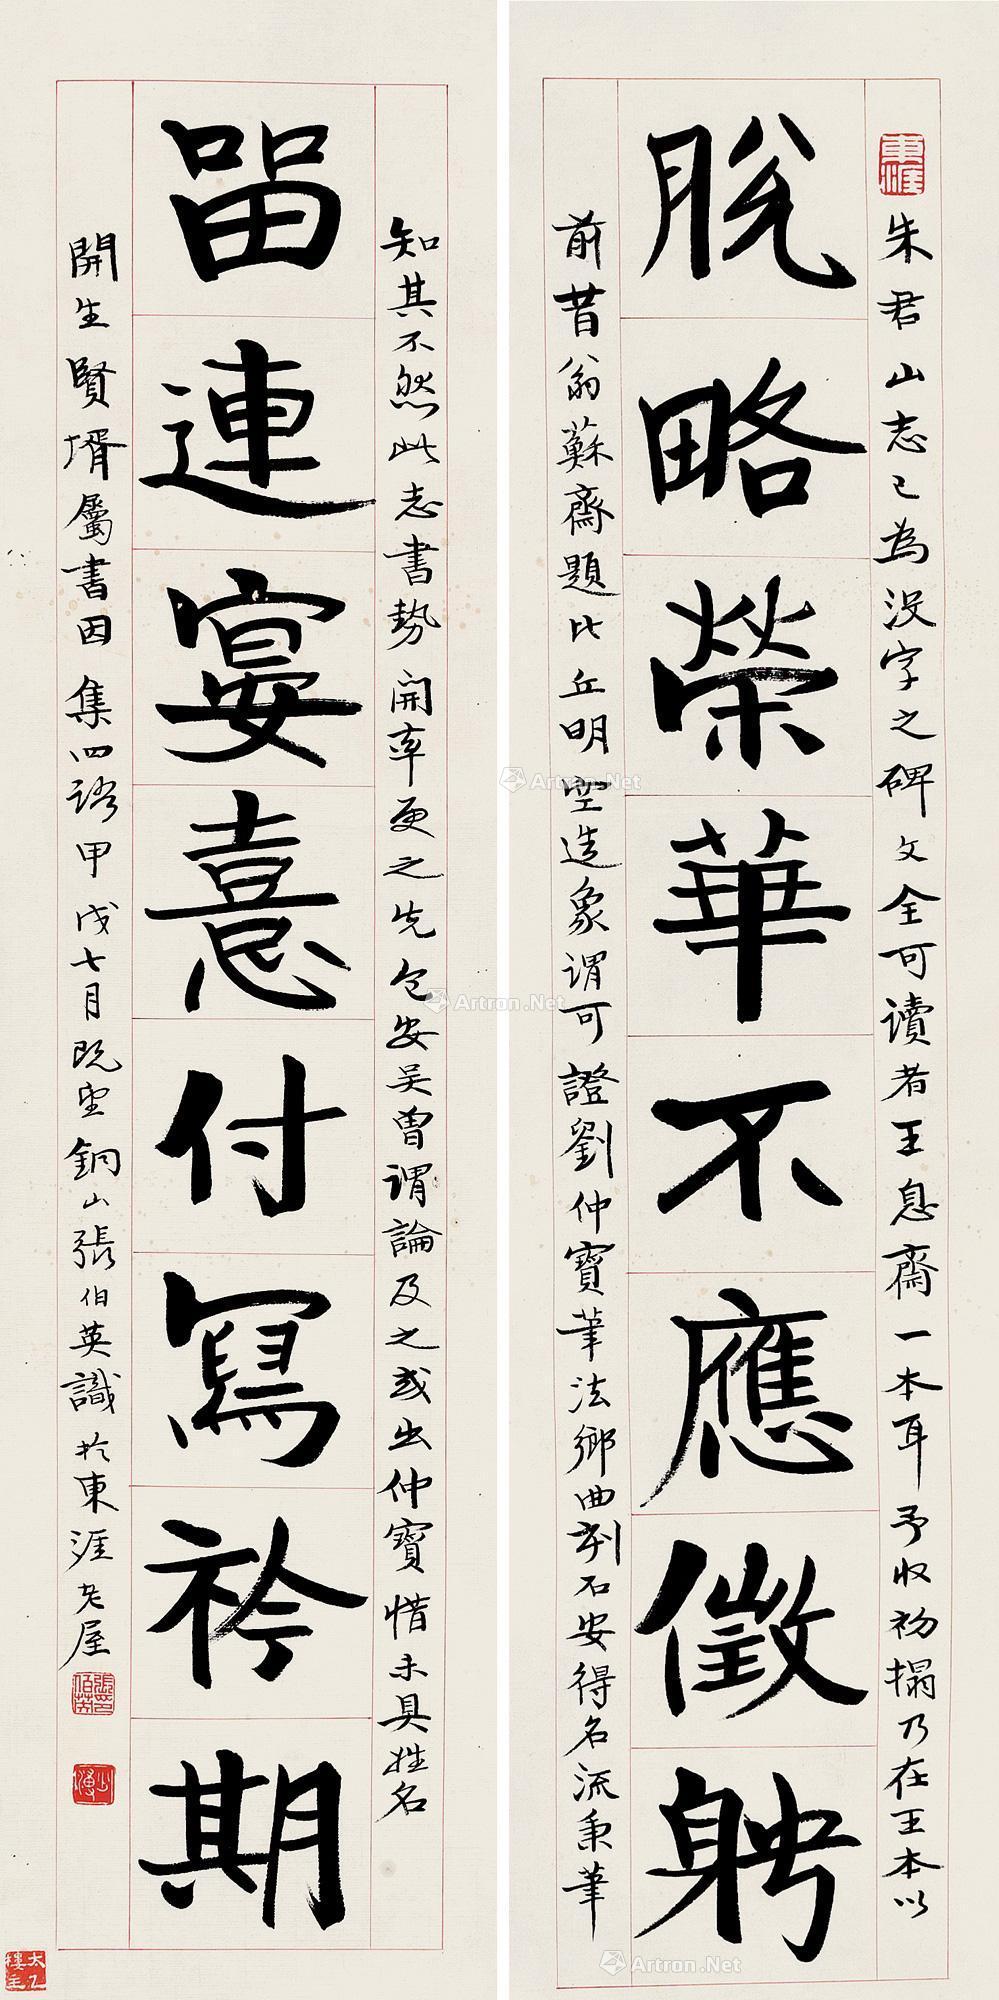 脫略榮華不應徵聘
留連宴憙付寫衿期
東涯
朱君山志已為沒字之碑文全可讀者王息齋一本耳予收初搨乃在王本以
前昔翁蘇齋題比丘明空造象謂可證劉仲寶筆法鄉曲刻石安得名流秉筆
知其不然此志書勢開率更之先包安吳曾謂論及之或出仲寶惜未具姓名
開生賢壻屬書因集四語甲戌七月既望銅山張伯英識於東涯老屋
張伯英印
少溥
太乙樓主
Artron.Net
Artron.Net
Artron.Net